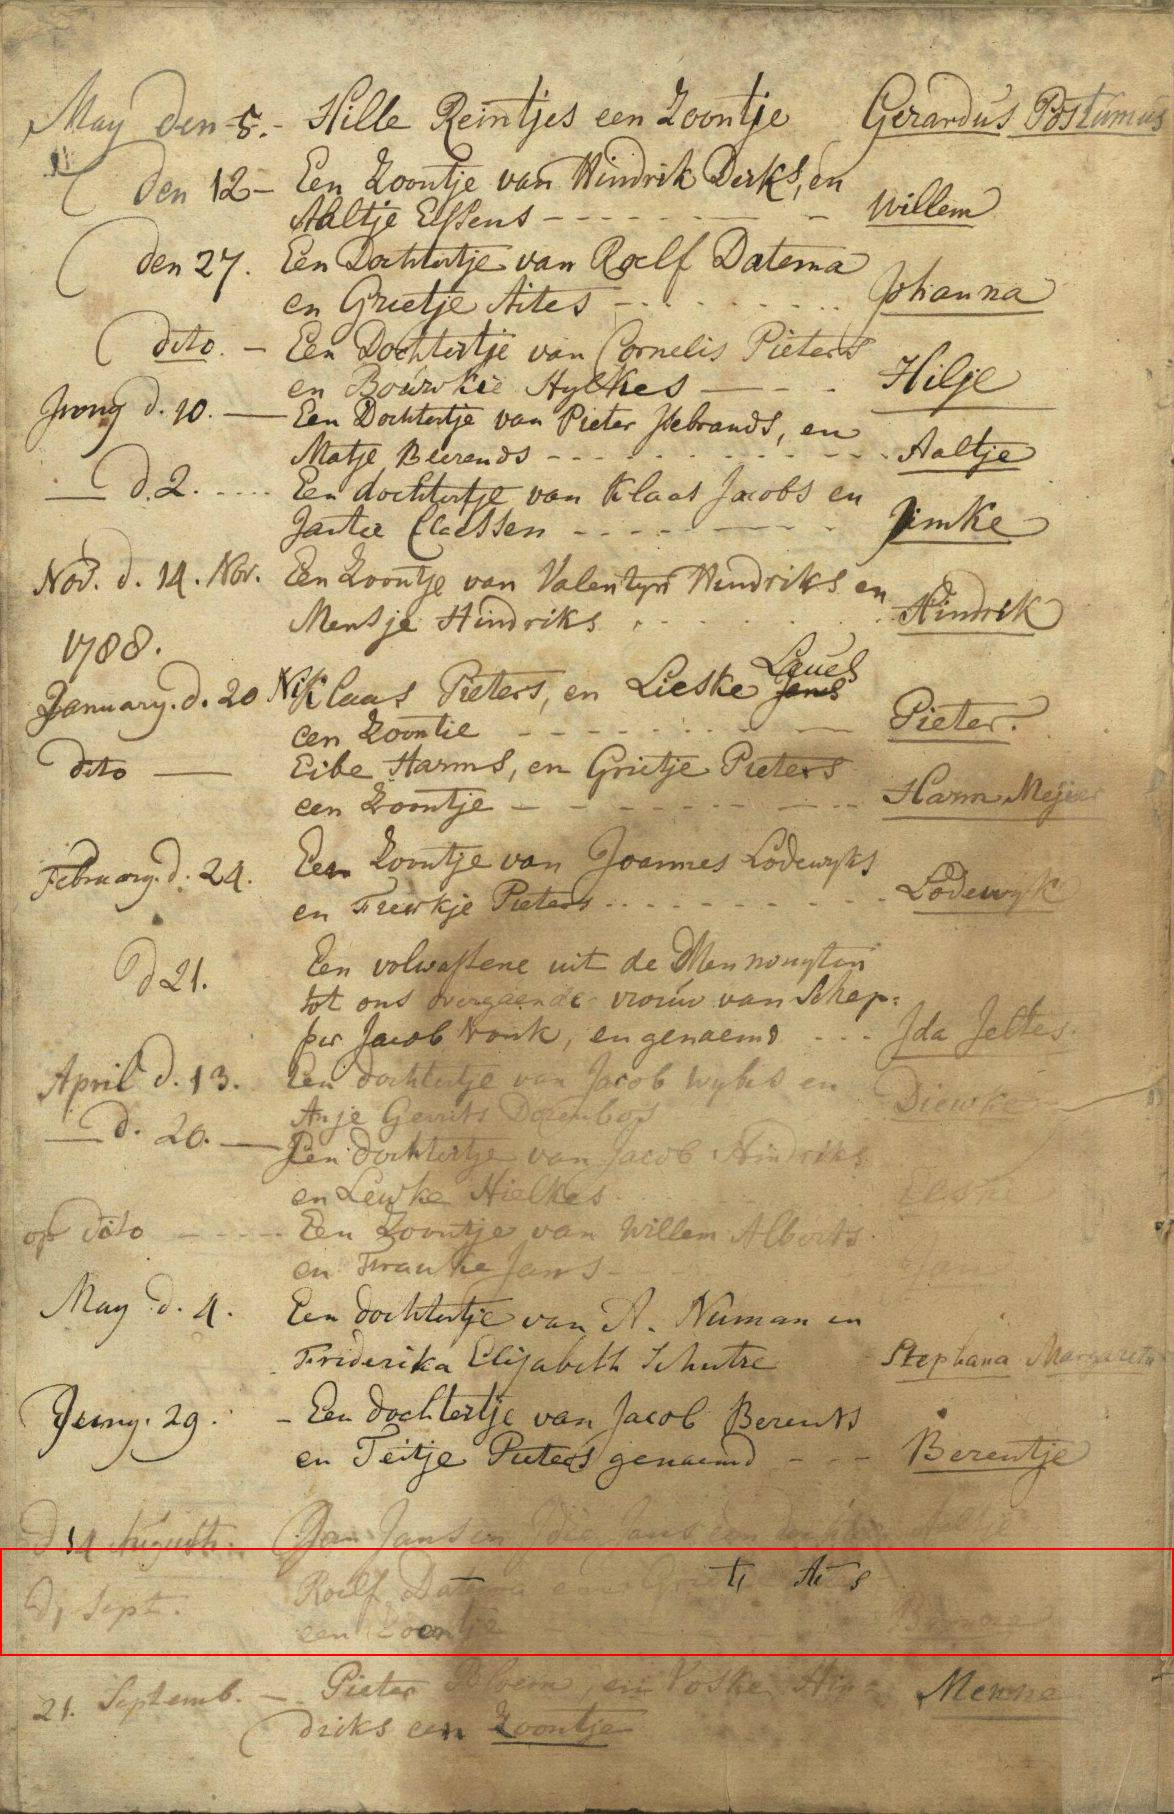 May den 5. - Hille Reintjes een Zoontje Gerardus Postumus
den 12 - Een Zoontje van Hindrik Derks, en
Aaltje Elssens - - - - - - - Willem
den 27. Een Dochtertje van Roelf Datema
en Grietje Aites - - - - - - Johanna
dito. - Een Dochtertje van Cornelis Pieters
en Bouwkie Hylkes - - - Hilje
Juny d. 10. - Een Dochtertje van Pieter Isebrands, en
Matje Beerends - - - - - - - Aaltje
- d. 2. - - - Een dochtertje van Klaas Jacobs en
Jantie Claessen - - - - - Jimke
Nov. d. 14. Nov. Een Zoontje van Valentyn Hindriks en
Mensje Hindriks . - - - - Hindrik
1788.
Lauës
January. d. 20 Niklaas Pieters, en Lieske Jans
een Zoontie - - - - - - - Pieter.
dito - Eibe Harms, en Grietje Pieters
een Zoontje - - - - - - - Harm Mejer
February. d. 24. Een Zoontje van Joannes Lodewyks
en Frerkje Pieters - - - - - - - Lodewyk
d 21. Een volwassene uit de Mennonyten
tot ons overgaende vrouw van Schep=
per Jacob Vonk, en genaemd - - - Ida Jeltes.
April d. 13. Een dochtertje van Jacob Wybes en
Anje Gerrits Dorenbos Diewke
- d. 20. - Een dochtertje van Jacob Hindriks
en Lewke Hielkes
op dito - - - - Een Zoontje van Willem Alberts
en Frauke Jans - Jan
May d. 4. Een dochtertje van A. Numan en
Friderika Elisabeth Schutze Stephana Margareta
Juny. 29. - Een dochtertje van Jacob Berents
en Teitje Pieters genaemd - - - Berentje
d 14 August. Jan Jansen Jans een Aaltje
d, Sept. Roelf Datema en Grietje Aites
een Zoontje
21. Septemb. - Pieter Bloem, en Voske Hin=
driks een Zoontje Menne